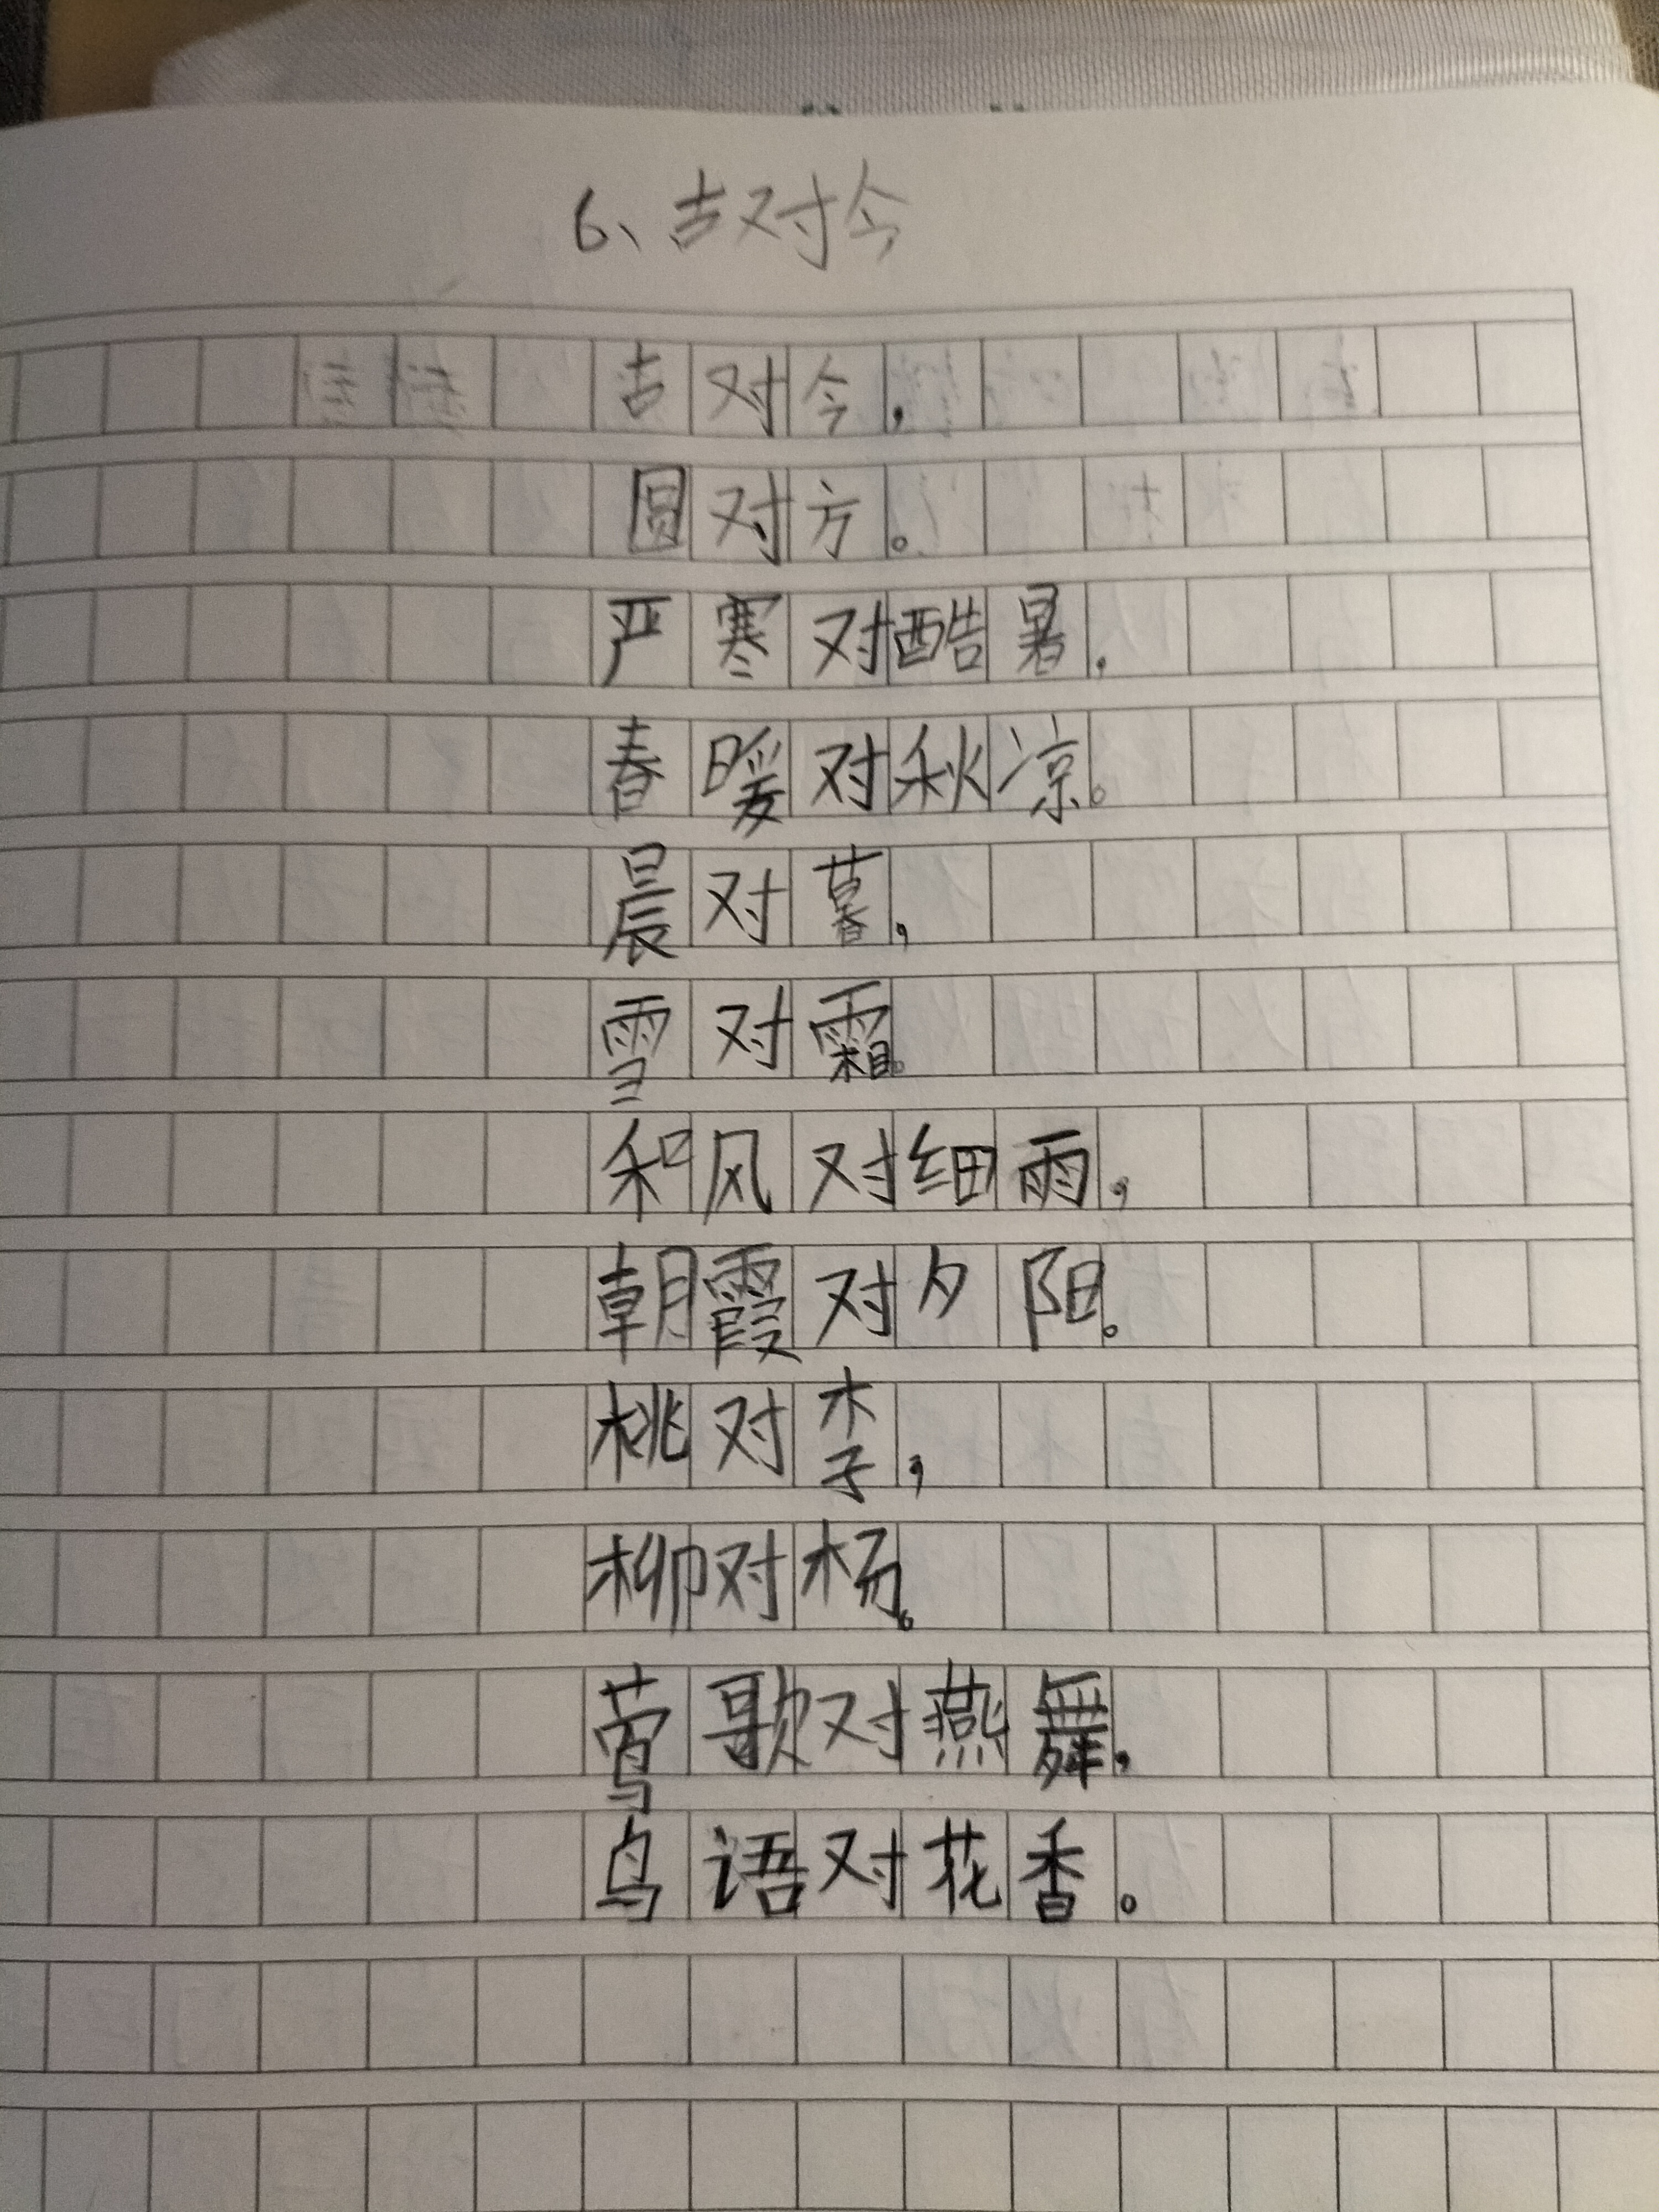 6、古对今
古对今，
圆对方。
严寒对酷暑，
春暖对秋凉。
晨对暮，
雪对霜。
和风对细雨，
朝霞对夕阳。
桃对李，
柳对杨。
莺歌对燕舞，
鸟语对花香。